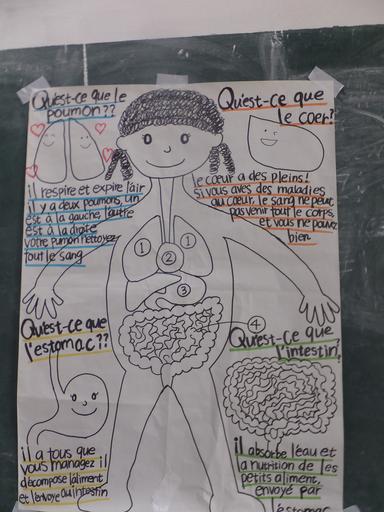 Qu'est-ce que le
poumon??
il respire et expire l'air
il y a deux poumons, un
est à la gauche, l'autre
est à la digite
votre pumon nettoyez
tout le sang
Qu'est-ce que
le coer?
le cœur a des pleins!
si vous aves des maladies
au cœur, le sang ne peut
pas venir tout le corps,
et vous ne pouvez
bien
1
1
2
3
4
Qu'est-ce que
l'estomac??
il a tous que
vous managez il
décompose l'aliment
et l'envoye au intestin
Qu'est-ce que
l'intestin?
il absorbe l'éau et
la nutrition de les
petits aliment,
envoyé par
l'éstomac